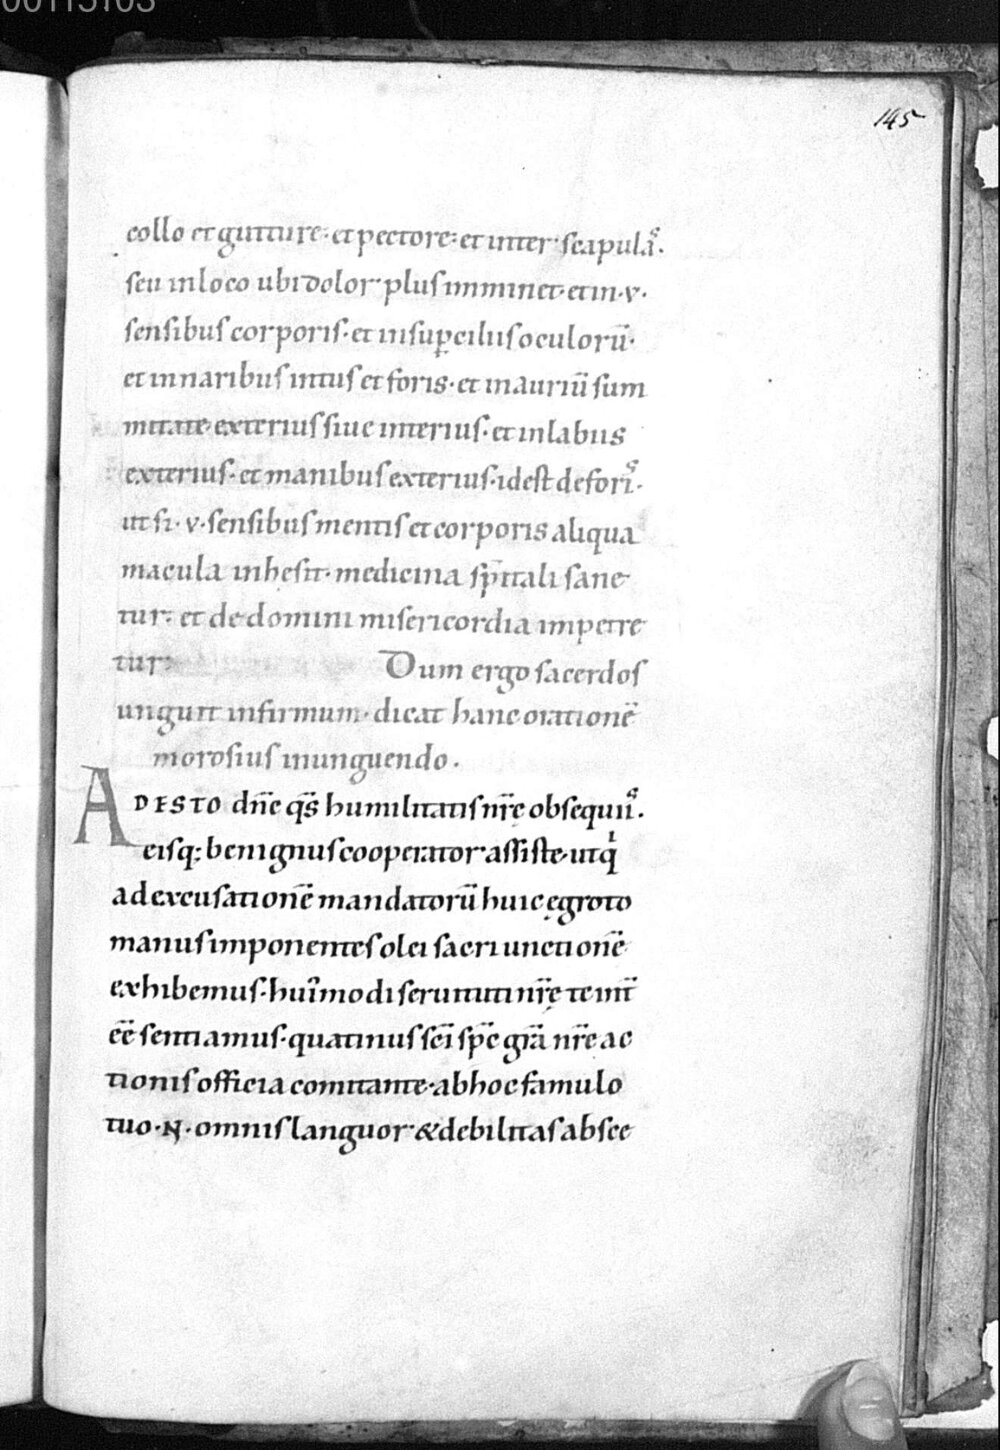 00115103
145
collo et gutture· et pectore· et inter scapulaˢ·
seu in loco ubi dolor plus imminet· et in·v·
sensibus corporis· et in sup̲ciliis oculorū·
et in naribus intus et foris· et in auriū sum
mitate exterius siue interius· et in labiis
exterius· et manibus exterius· id est de foriˢ·
ut si·v· sensibus mentis et corporis aliqua
macula inhesit· medicina sp̄itali sane
tur· et de domini misericordia impetre
tur· Dum ergo sacerdos
unguit infirmum· dicat hanc orationē
morosius inunguendo·
ADESTO dn̄e qs̄ humilitatis nr̄ę obsequiiˢ·
eisq; benignus cooperator assiste· ut qⁱ
ad excusationē mandatorū huic ęgroto
manus imponentes olei sacri unctionē
exhibemus· hui᷒modi seruituti nr̄ę te int̄
ēē sentiamus· quatinus sc̄i sp̄c gr̄a nr̄e ac
tionis officia comitante· ab hoc famulo
tuo·N· omnis languor & debilitas absce